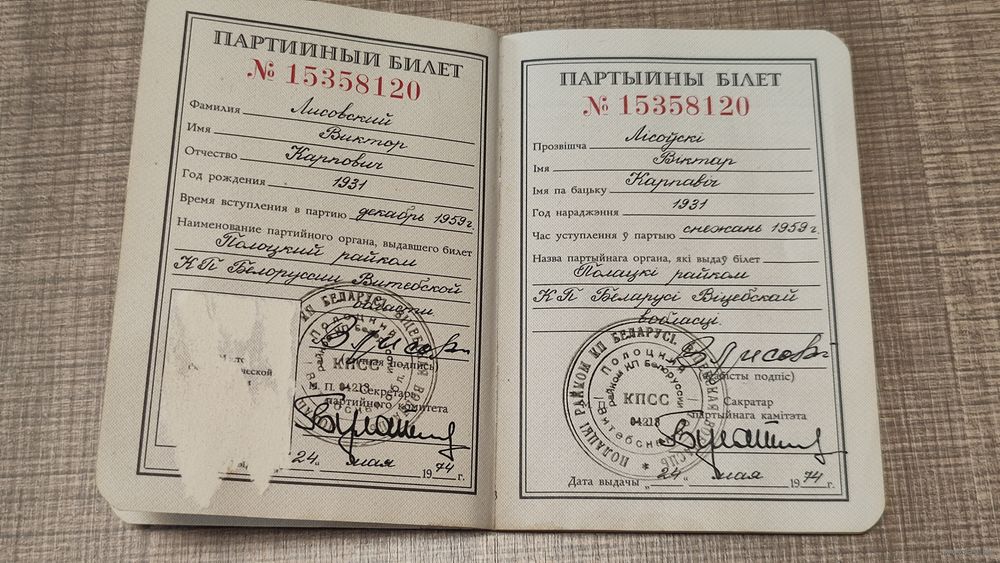 ПАРТИЙНЫЙ БИЛЕТ
№ 15358120
Фамилия Лисовский
Имя Виктор
Отчество Карпович
Год рождения 1931
Время вступления в партию декабрь 1959 г.
Наименование партийного органа, выдавшего билет
Полоцкий райком
КП Белоруссии Витебской
области
Личная подпись
М. П.
Секретарь
партийного комитета
24 мая 1974 г.
КПСС
04213
ПАРТЫЙНЫ БІЛЕТ
№ 15358120
Прозвішча Лісоўскі
Імя Віктар
Імя па бацьку Карпавіч
Год нараджэння 1931
Час уступлення ў партыю снежань 1959 г.
Назва партыйнага органа, які выдаў білет
Полацкі райком
КП Беларусі Віцебскай
вобласці
(асабісты подпіс)
Сакратар
партыйнага камітэта
Дата выдачы „24“ мая 1974 г.
ПОЛАЦКІ РАЙКОМ КП БЕЛАРУСІ
Полоцкий
райком КП Белоруссии
Витебской
КПСС
04213